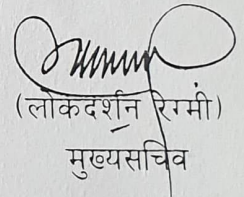 (लोकदर्शन रिग्मी)
मुख्यसचिव